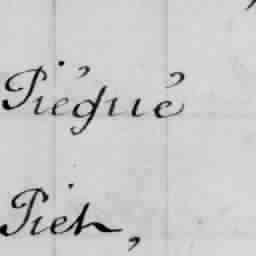 Piégué
Pieh,